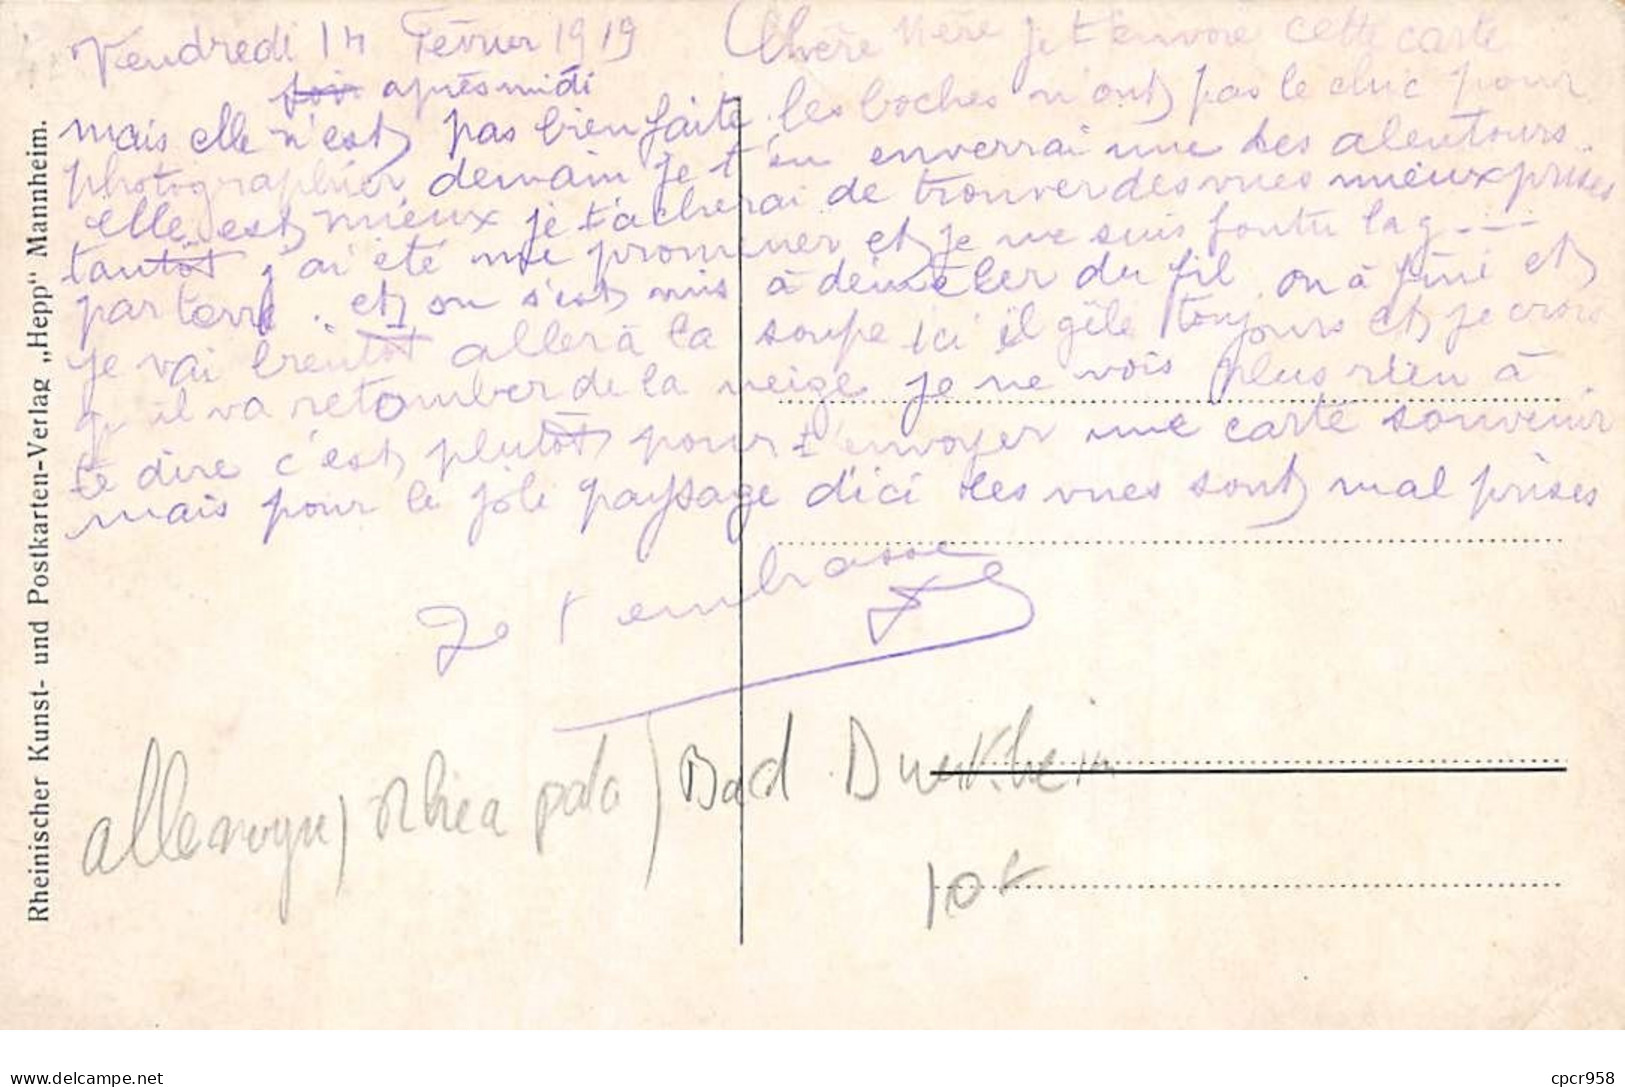 Vendredi 14 Février 1919
Chère Mère je t'envoie cette carte
soir après midi
mais elle n'est pas bien faite les boches n'ont pas le chic pour
photographier demain je t'en enverrai une des alentours
elle est mieux je tâcherai de trouver des vues mieux prises
tantôt j'ai été me promener et je me suis foutu la g----
par terre. et on s'est mis à démêler du fil on à fini et
je vai bientôt aller à la soupe ici il gêle toujours et je crois
qu'il va retomber de la neige je ne vois plus rien à
te dire c'est plutôt pour t'envoyer une carte souvenir
mais pour le joli paysage d'ici les vues sont mal prises
Je t'embrasse
allemagne / Rhea pala / Bad Durkheim
10t
Rheinischer Kunst- und Postkarten-Verlag „Hepp" Mannheim.
cpcr958